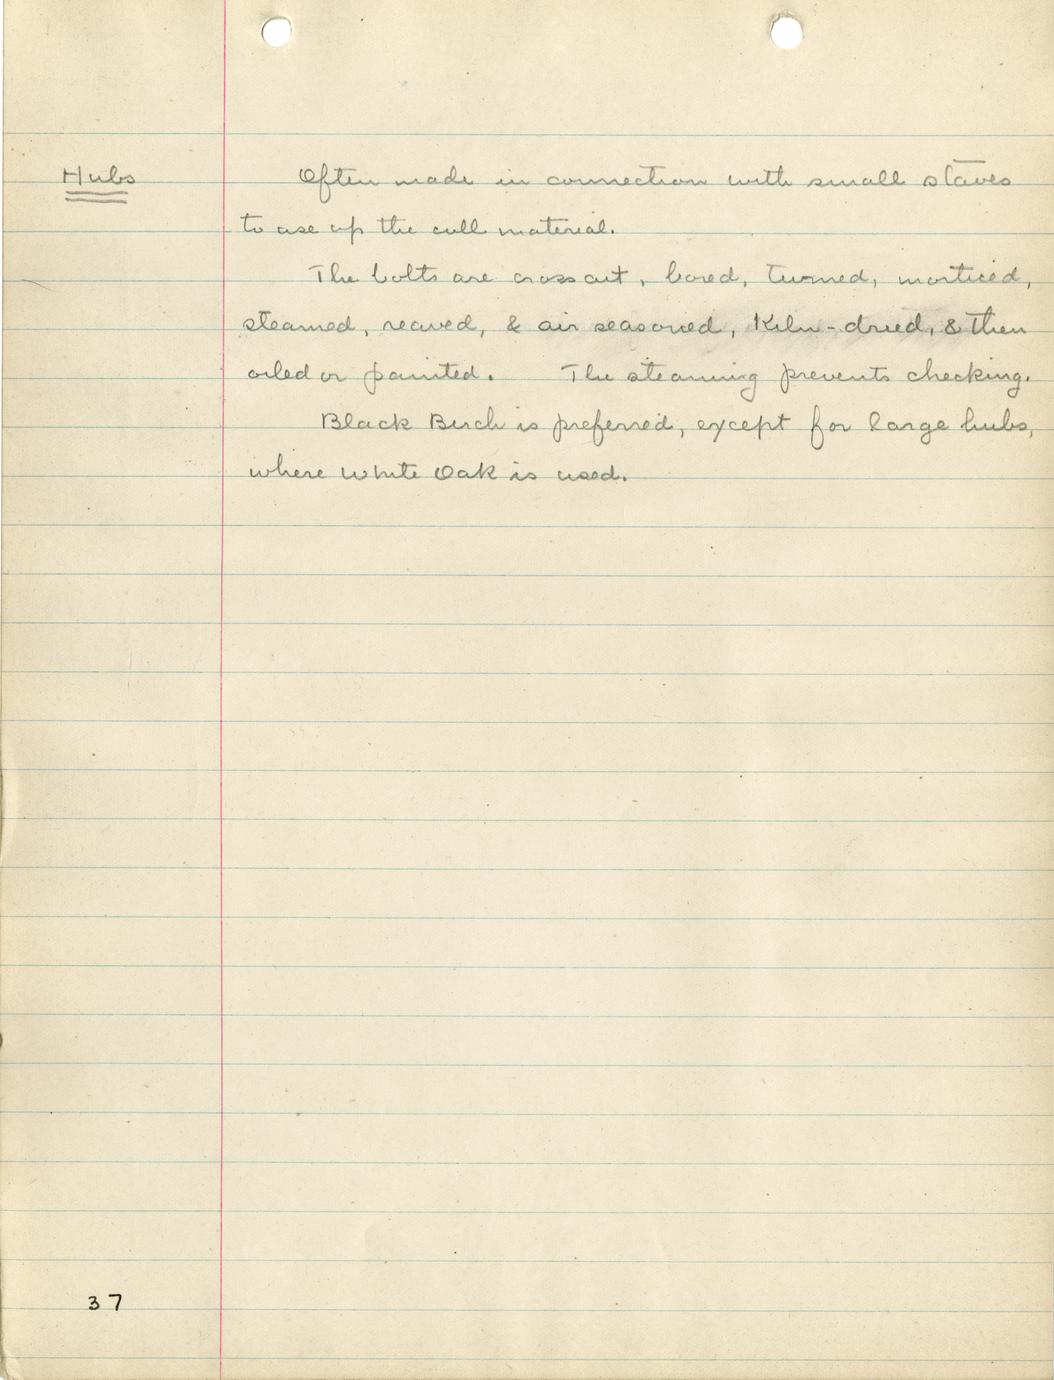 Hubs
Often made in connection with small staves
to use up the cull material.
The bolts are cross cut, bored, turned, morticed,
steamed, reaved, & air seasoned, Kiln-dried, & then
oiled or painted. The steaming prevents checking.
Black Birch is preferred, except for large hubs,
where White Oak is used.
37